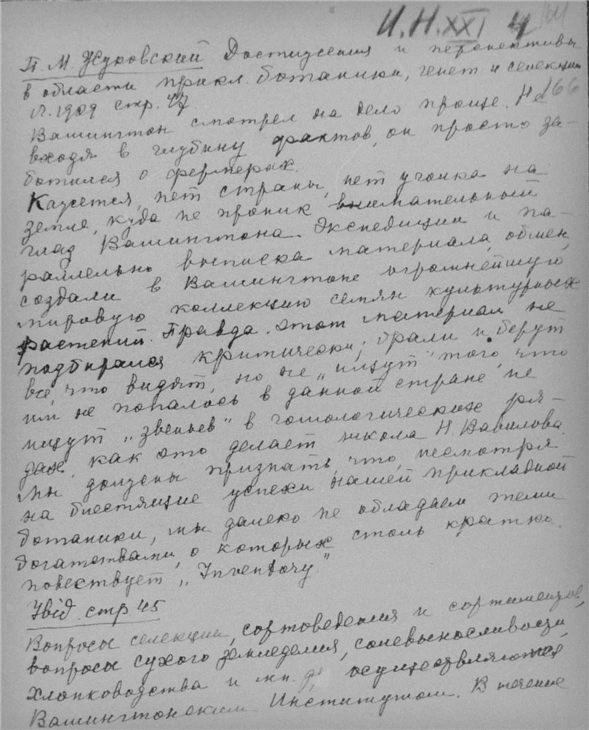 И.Н. XXI 4
П. М. Жуковский Достижения и перспективы
в области прикл. ботаники, генет и селекции
Л. 1929 стр. 47
Вашингтон смотрел на дело проще. Не
входя в глубину фактов, он просто за-
ботился о фермерах.
Кажется, нет страны, нет уголка на
земле, куда не проник внимательный
глаз Вашингтона. Экспедиции и па-
раллельно выписка материала, обмен,
создали в Вашингтоне огромнейшую
мировую коллекцию семян культурных
растений. Правда. этот материал не
подбирался критически; брали и берут
все, что видят, но не „ищут" того что
им не попалось в данной стране не
ищут „звеньев" в гомологических ря-
дах как это делает школа Н. Вавилова
Мы должны признать, что, несмотря
на блестящие успехи нашей прикладной
ботаники, мы далеко не обладаем теми
богатствами, о которых столь кратко
повествует „Inventory."
Ibid стр 45
Вопросы селекции, сортоведения и сортиментов,
вопросы сухого земледелия, солевыносливости,
хлопководства и мн. др. осуществляются
Вашингтонским Институтом. В течение